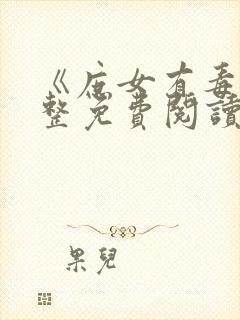 《庶女有毒
整免費閱讀
果兒